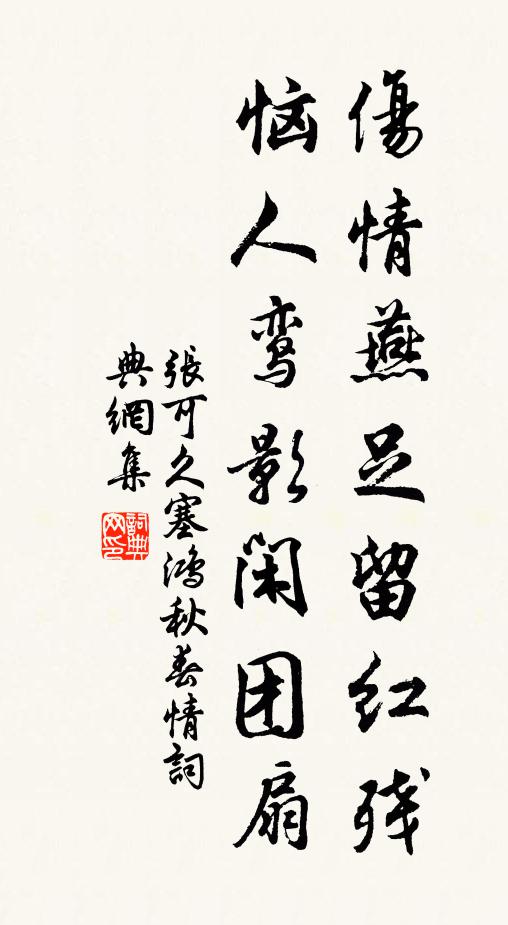 傷情燕足留红残
恼人鸾影闲团扇
張可久塞鴻秋春情詞
典網集
詞典網印